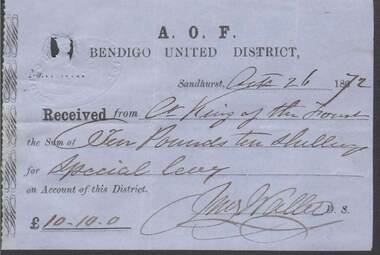 A. O. F.
BENDIGO UNITED DISTRICT,
Sandhurst, Octr 26 1872
Received from Ct King of the Forest
the Sum of Ten Pounds ten shillings
for Special levy
on Account of this District.
£10-10.0 D. S.